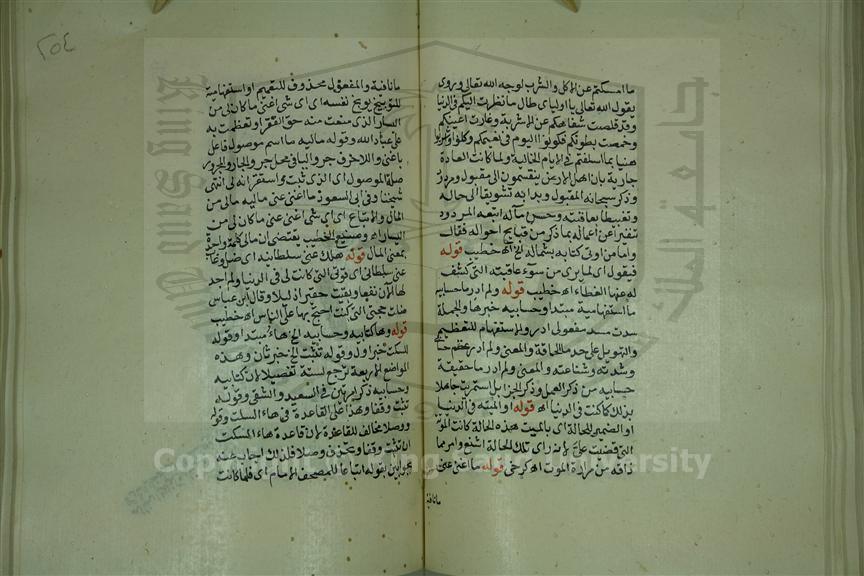 ما امسكتم عن الاكل والشرب لوجه الله تعالى وروى
يقول الله تعالى يا اوليائي طال ما نظرت اليكم في الدنيا
وقد قلصت شفاهكم عن الاشربة وغارت اعينكم
وخمصت بطونكم فكونوا اليوم في نعيمكم وكلوا واشربوا
هنيا بما اسلفتم في الايام الخالية ولما كانت العادة
جارية بان اهل الارض ينقسمون الى مقبول ومردود
وذكر سبحانه المقبول وبدا به تشويقا الى حاله
وتغبيطا بعاقبته وحسن مآله اتبعه المردود
تنفيرا عن اعماله بما ذكر من قبايح احواله فقال
واما من اوتى كتابه بشماله الخ اه خطيب قوله
فيقول اي لما يرى من سوء عاقبته التي كشف
له عنها الغطاء اه خطيب قوله ولم ادر ما حسابيه
ما استفهامية مبتدا وحسابيه خبرها والجملة
سدت مسد مفعولى ادر والاستفهام للتعظيم
والتهويل على حد ما الحاقة والمعنى ولم ادر عظم حسابي
وشدته وشناعته والمعنى ولم ادر ما حقيقة
حسابيه من ذكر العمل وذكر الجزا بل استمريت جاهلا
بذلك كما كنت في الدنيا اه قوله او الميتة في الدنيا
او الضمير للحالة اي يا ليت هذه الحالة كانت الموتة
التي قضيت على لانه راى تلك الحالة اشنع وامر مما
ذاقه من مرارة الموت اه كرخى قوله ما اغنى عنى
ما نافية
٢٥٤
ما نافية والمفعول محذوف للتعميم او استفهامية
للتوبيخ يوبخ نفسه اي اي شي اغنى ما كان لي من
اليسار الذي منعت منه حق الفقرا وتعظمت به
على عباد الله وقوله ماليه ما اسم موصول فاعل
باغنى واللام حرف جر واليا في محل جر والجار والمجرور
صلة الموصول اي الذي ثبت واستقر انه لي انتهى
شيخنا وفي ابي السعود ما اغنى عنى ماليه مالي من
المال والاتباع اي اي شي اغنى عني ما كان لي من
اليسار اه وصنيع الخطيب يقتضى ان مالي كلمة واحدة
بمعنى المال قوله هلك عني سلطانيه اي ضل وغاب
عني سلطاني اي قوتي التي كانت لي في الدنيا ولم اجد
لها الآن نفعا وبقيت حقيرا ذليلا وقال ابن عباس
ضلت حجتي التي كنت احتج بها على الناس اه خطيب
قوله وها كتابيه وحسابيه الخ هاء مبتدا وقوله
للسكت خبر اول وقوله تثبت الخ خبر ثان وهذه
المواضع الاربعة ترجع لستة تفصيلا لان كتابيه
وحسابيه ذكرا مرتين في السعيد والشقى وقوله
تثبت وقفا وهذا على القاعدة في هاء السكت وقوله
ووصلا مخالف للقاعدة لان قاعدة هاء السكت
ان تثبت وقفا وتحذف وصلا فلذلك اجاب عنه
بجوابين بقوله اتباعا للمصحف الامام اي فلما كانت
Copyright © King Saud University
King Saud University
جامعة الملك